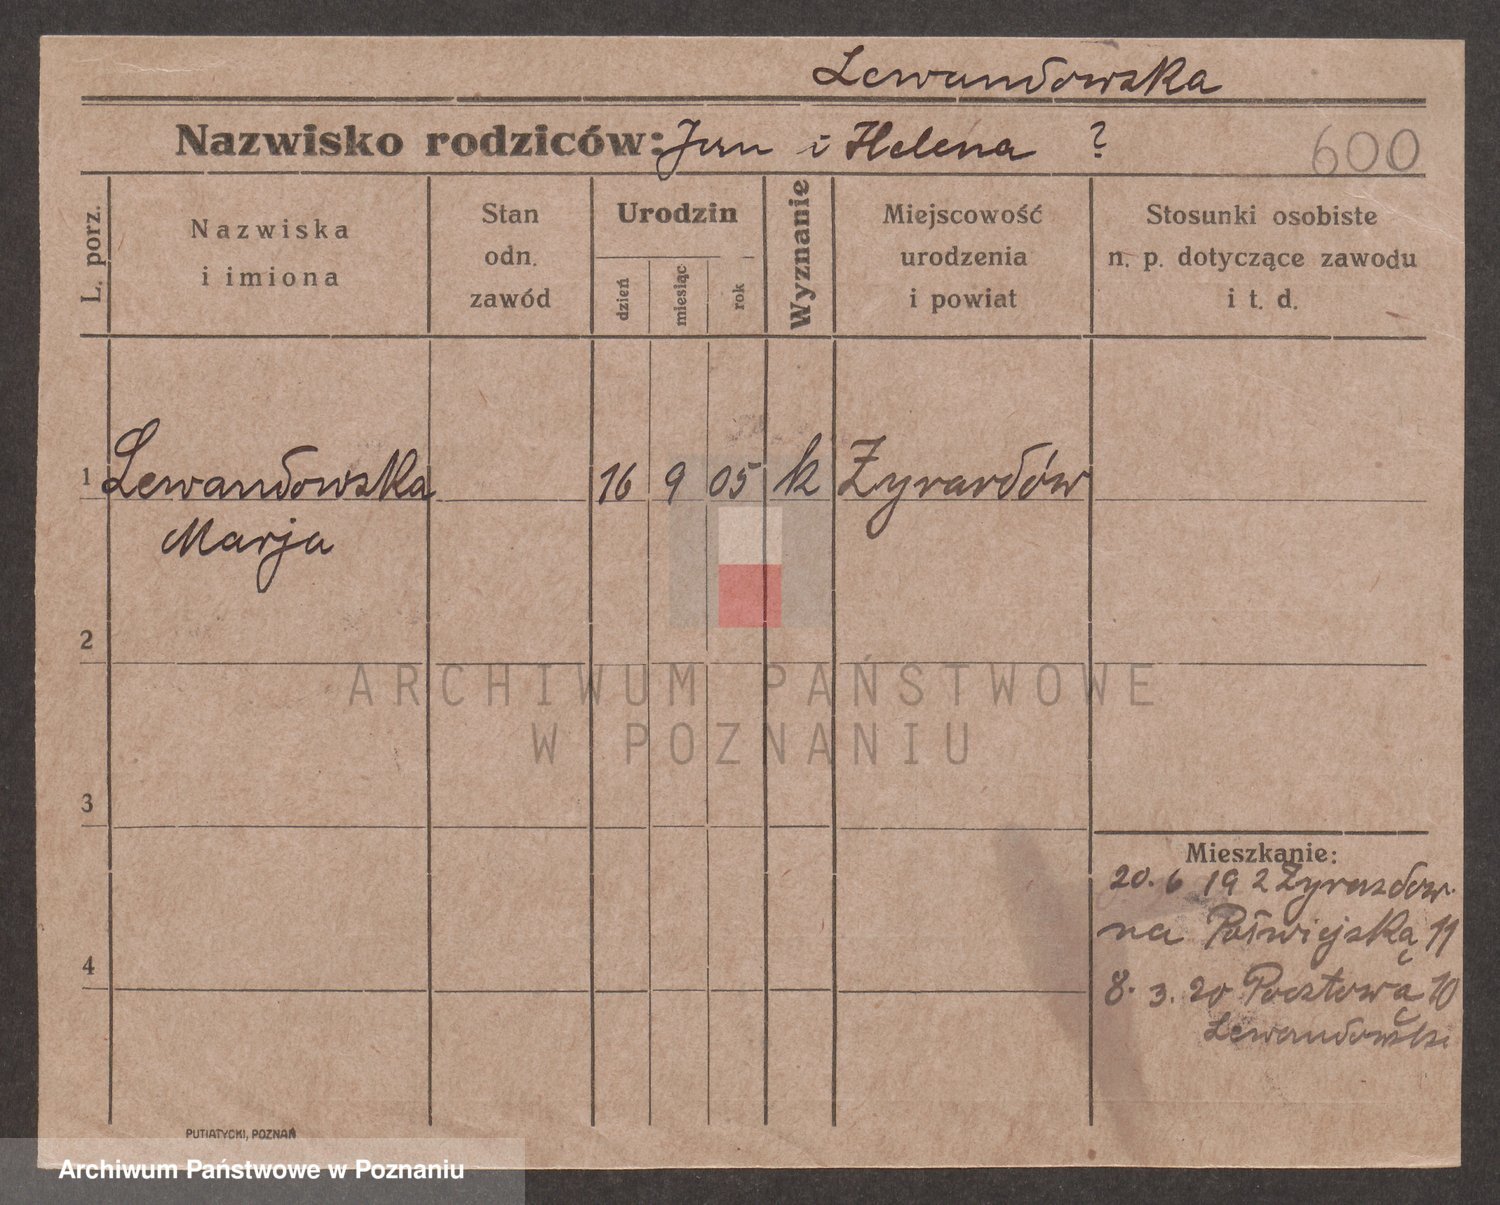 Lewandowska
Nazwisko rodziców: Jan i Helena ?
600
L. porz.
Nazwiska
i imiona
Stan
odn.
zawód
Urodzin
dzień
miesiąc
rok
Wyznanie
Miejscowość
urodzenia
i powiat
Stosunki osobiste
n. p. dotyczące zawodu
i t. d.
1 Lewandowska 16 9 05 k Żyrardów
Marja
2
ARCHIWUM PAŃSTWOWE
W POZNANIU
3
Mieszkanie:
20. 6 192 Żyrardów
na Półwiejską 11
4
8. 3. 20 Pocztową 10
Lewandowski
PUTIATYCKI, POZNAŃ
Archiwum Państwowe w Poznaniu